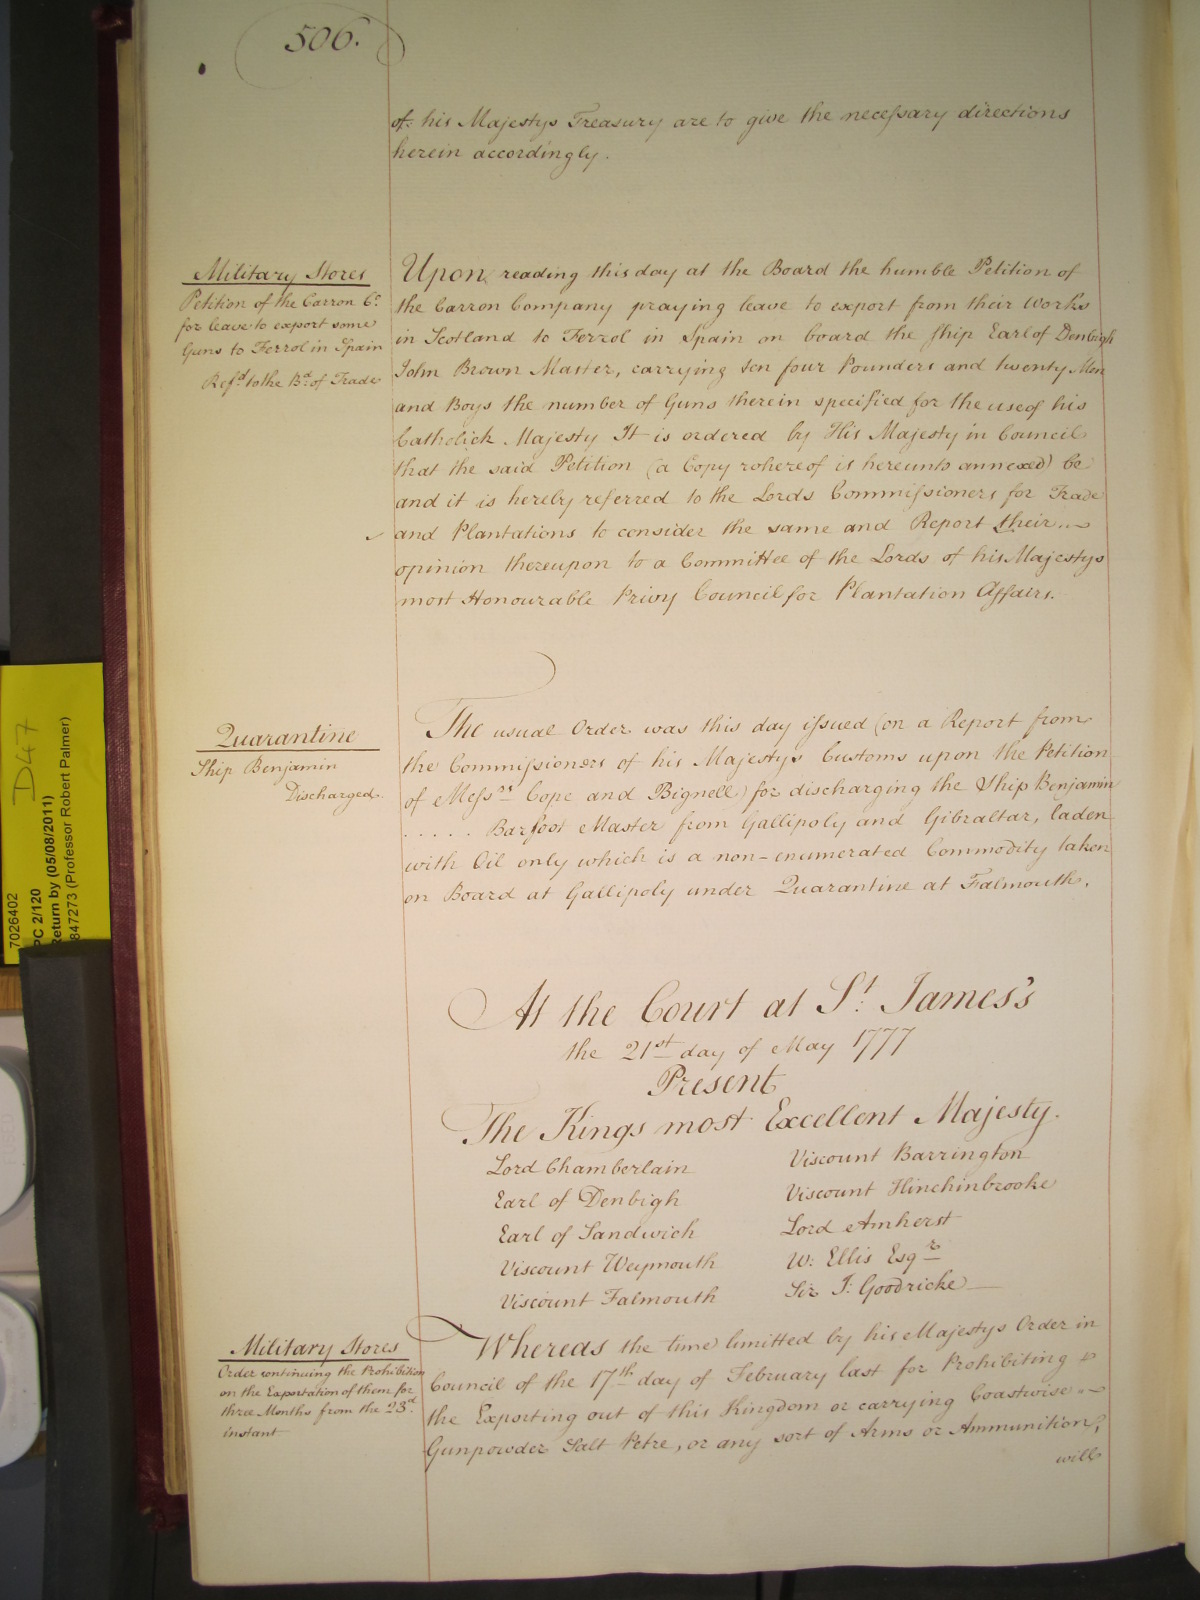 506.
of his Majestys Treasury are to give the necessary directions
herein accordingly.
Military Stores
Petition of the Carron Co.
for leave to export some
Guns to Ferrol in Spain
Refd. to the Bd. of Trade
Upon reading this day at the Board the humble Petition of
the Carron Company praying leave to export from their Works
in Scotland to Ferrol in Spain on board the Ship Earl of Denbigh
John Brown Master, carrying ten four Pounders and twenty Men
and Boys the number of Guns therein specified for the use of his
Catholick Majesty It is ordered by His Majesty in Council
that the said Petition (a Copy whereof is hereunto annexed) be
and it is hereby referred to the Lords Commissioners for Trade
and Plantations to consider the same and Report their
opinion thereupon to a Committee of the Lords of his Majestys
most Honourable Privy Council for Plantation Affairs.
Quarantine
Ship Benjamin
Discharged.
The usual Order was this day issued (on a Report from
the Commissioners of his Majestys Customs upon the Petition
of Messrs. Cope and Bignell) for discharging the Ship Benjamin
..... Barfoot Master from Gallipoly and Gibraltar, laden
with Oil only which is a non-enumerated Commodity taken
on Board at Gallipoly under Quarantine at Falmouth.
At the Court at St. James's
the 21st day of May 1777
Present
The Kings most Excellent Majesty.
Lord Chamberlain
Earl of Denbigh
Earl of Sandwich
Viscount Weymouth
Viscount Falmouth
Viscount Barrington
Viscount Hinchinbrooke
Lord Amherst
W: Ellis Esqr.
Sir J: Goodricke
Military Stores
Order continuing the Prohibition
on the Exportation of them for
three Months from the 23d.
instant
Whereas the time limitted by his Majestys Order in
Council of the 17th day of February last for Prohibiting
the Exporting out of this Kingdom or carrying Coastwise
Gunpowder Salt Petre, or any sort of Arms or Ammunition,
will
D47
7026402
PC 2/120
Return by (05/08/2011)
847273 (Professor Robert Palmer)